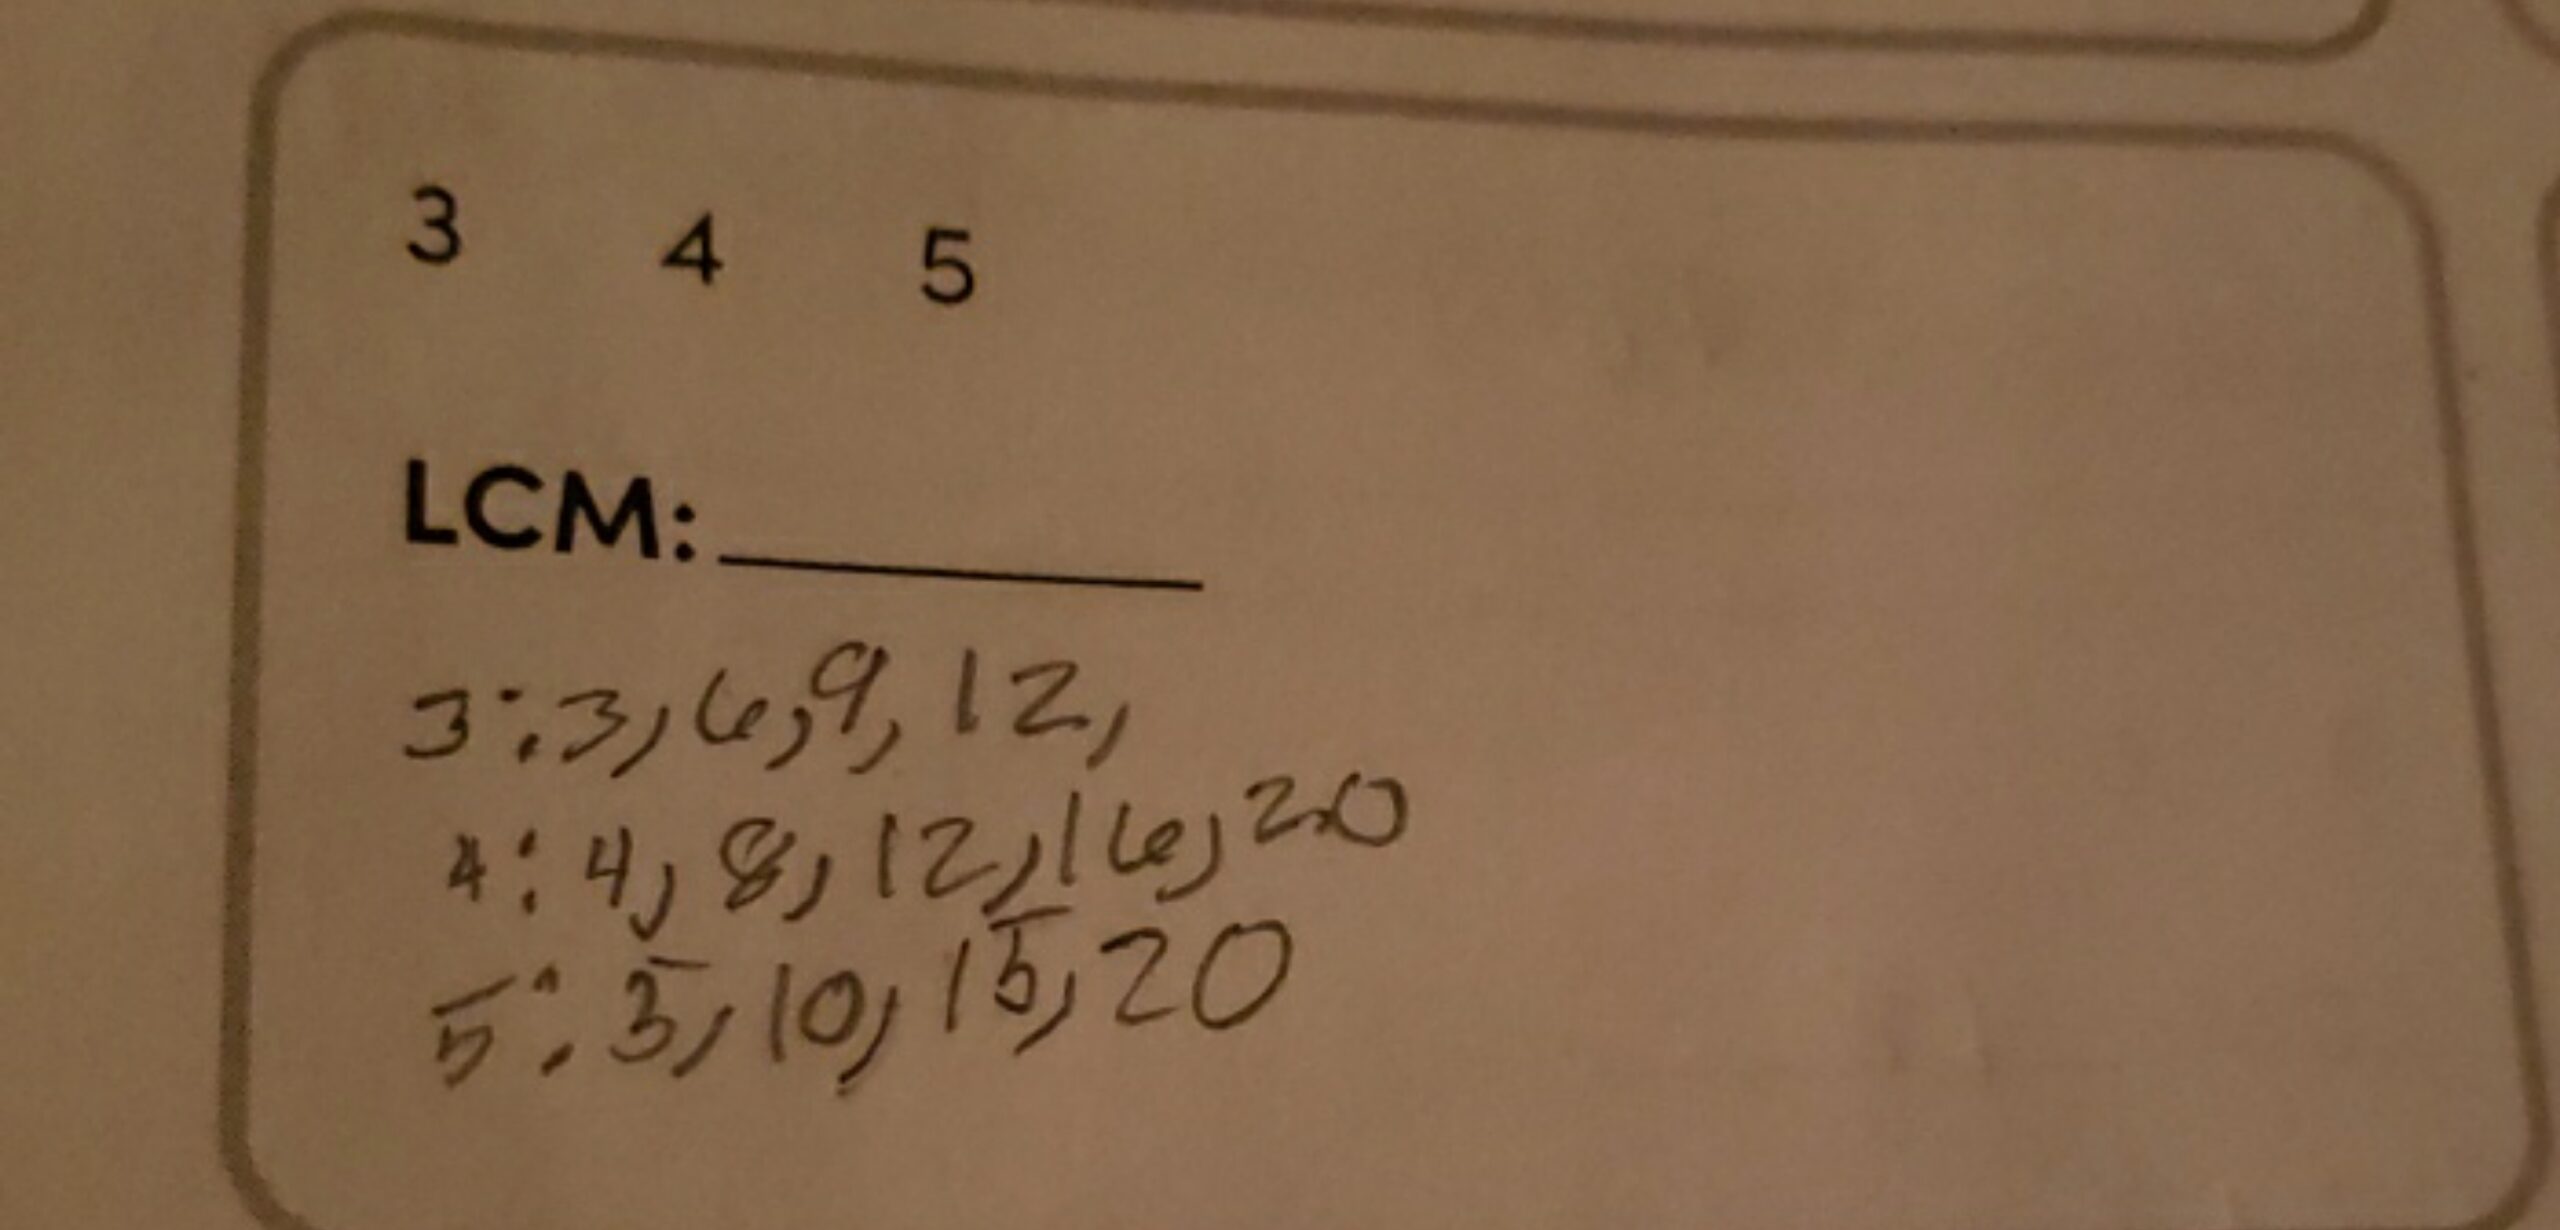 3 4 5
LCM:________
3:3,6,9,12,
4:4,8,12,16,20
5:5,10,15,20